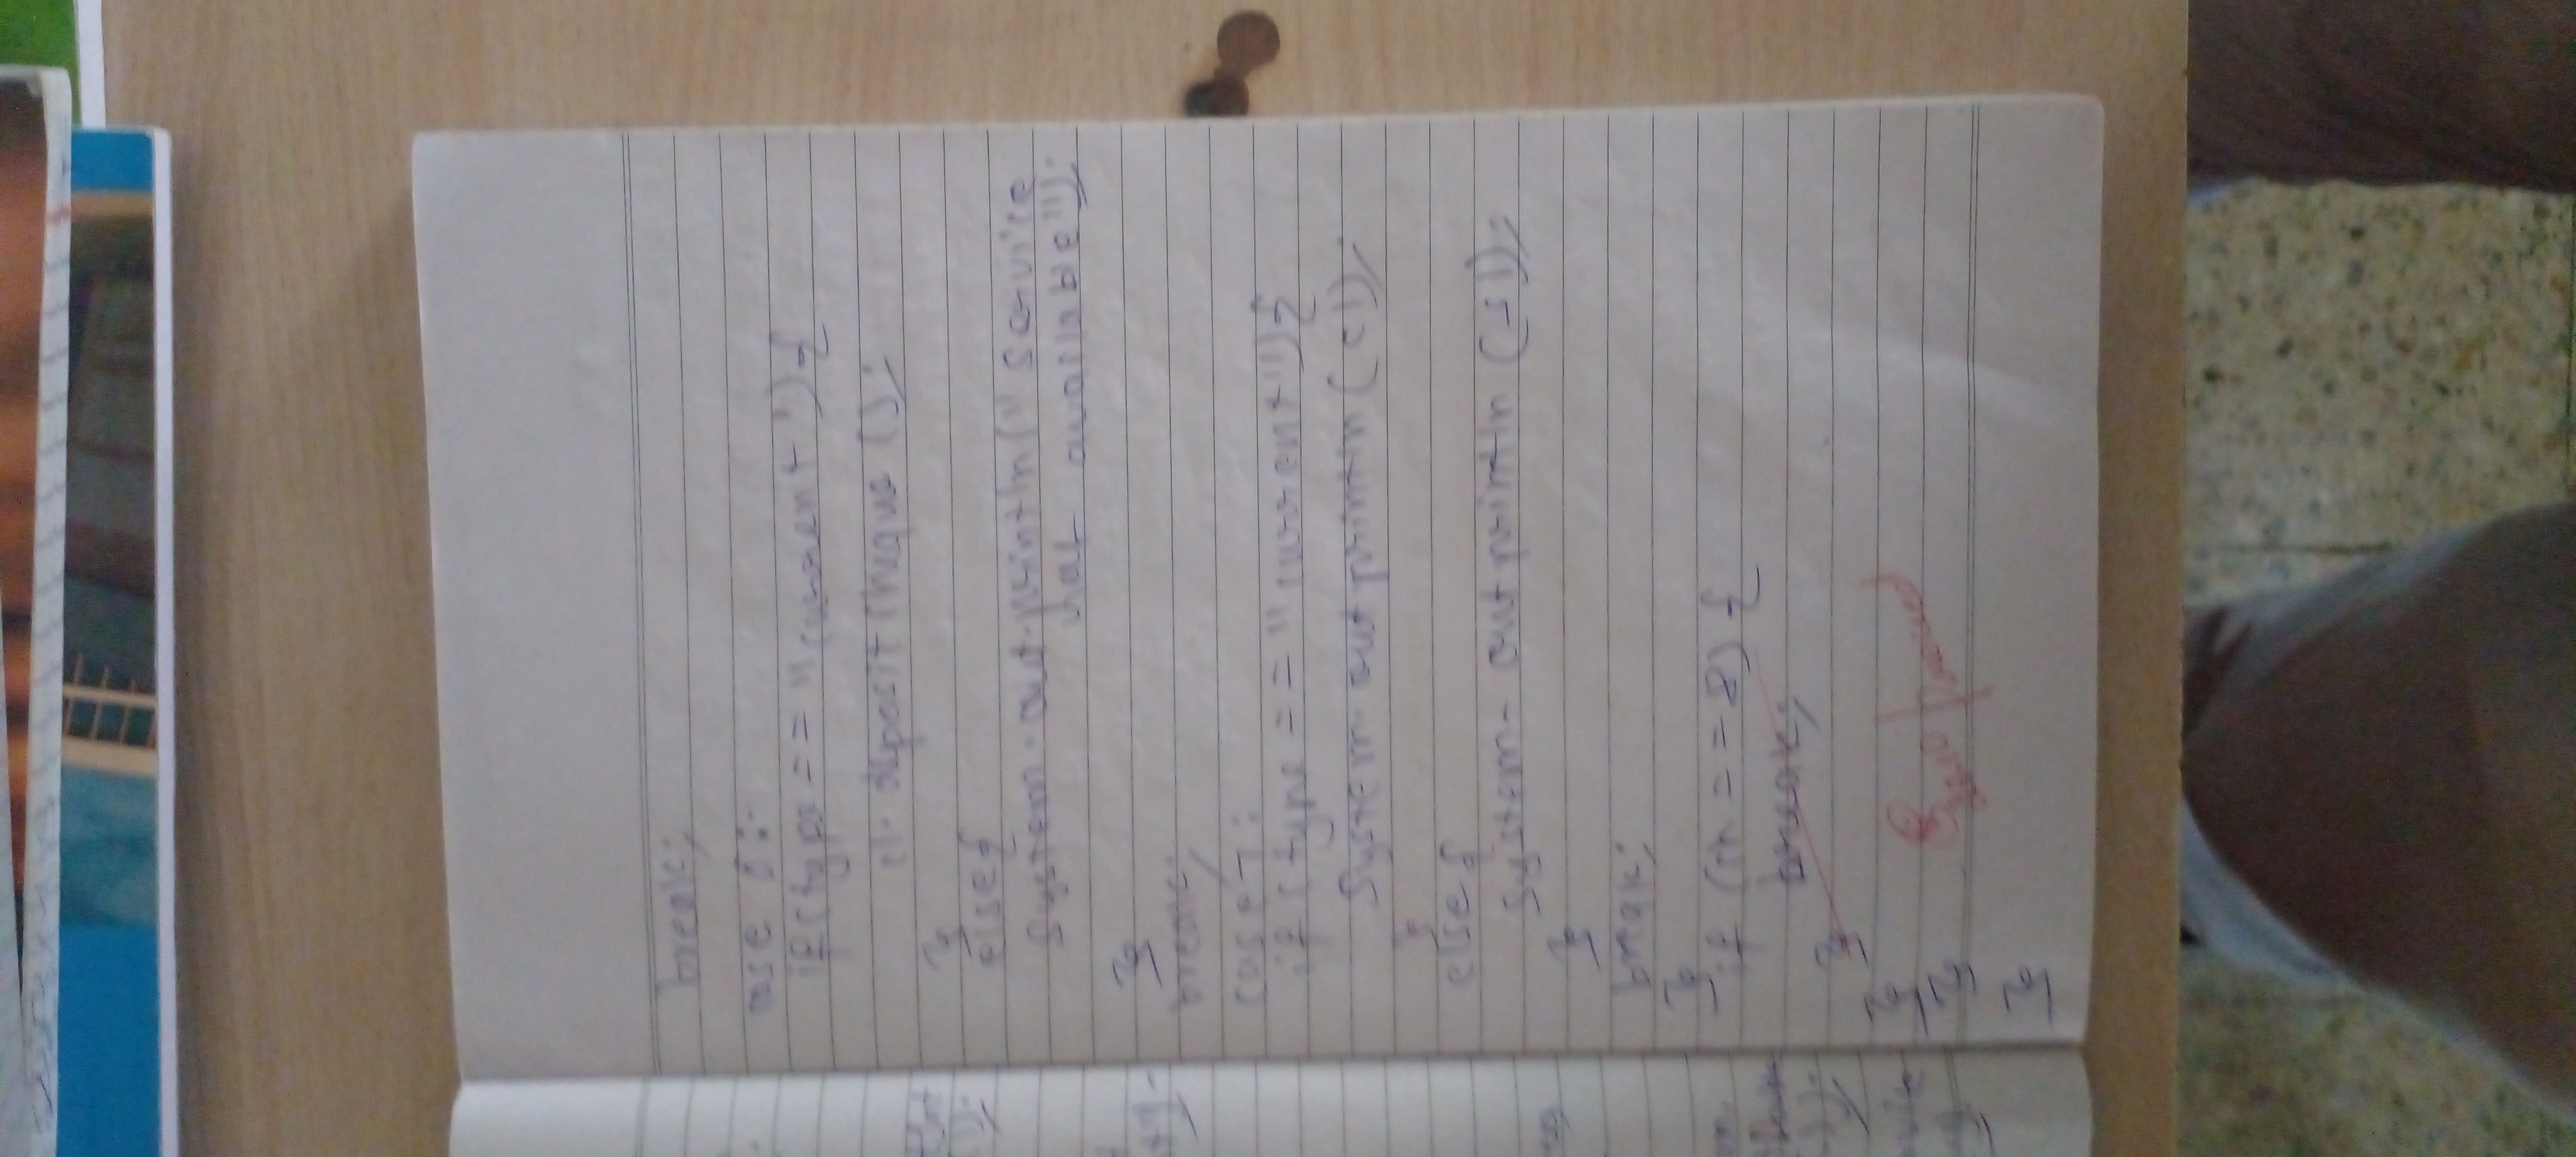 break;
case 6:
if(type == "current"){
c1.depositCheque();
}
else{
System.out.println("Service
not available");
}
break;
case 7:
if(type == "current"){
System.out.println(c1);
}
else{
System.out println(s1);
}
break;
}
if (ch == 8) {
break;
}
}
}
}